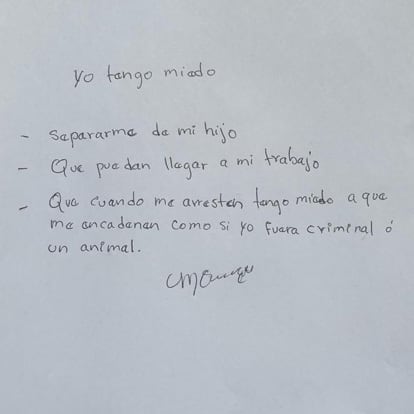 Yo tengo miedo
- Separarme de mi hijo
- Que puedan llegar a mi trabajo
- Que cuando me arresten tengo miedo a que
me encadenen como si yo fuera criminal ó
un animal.